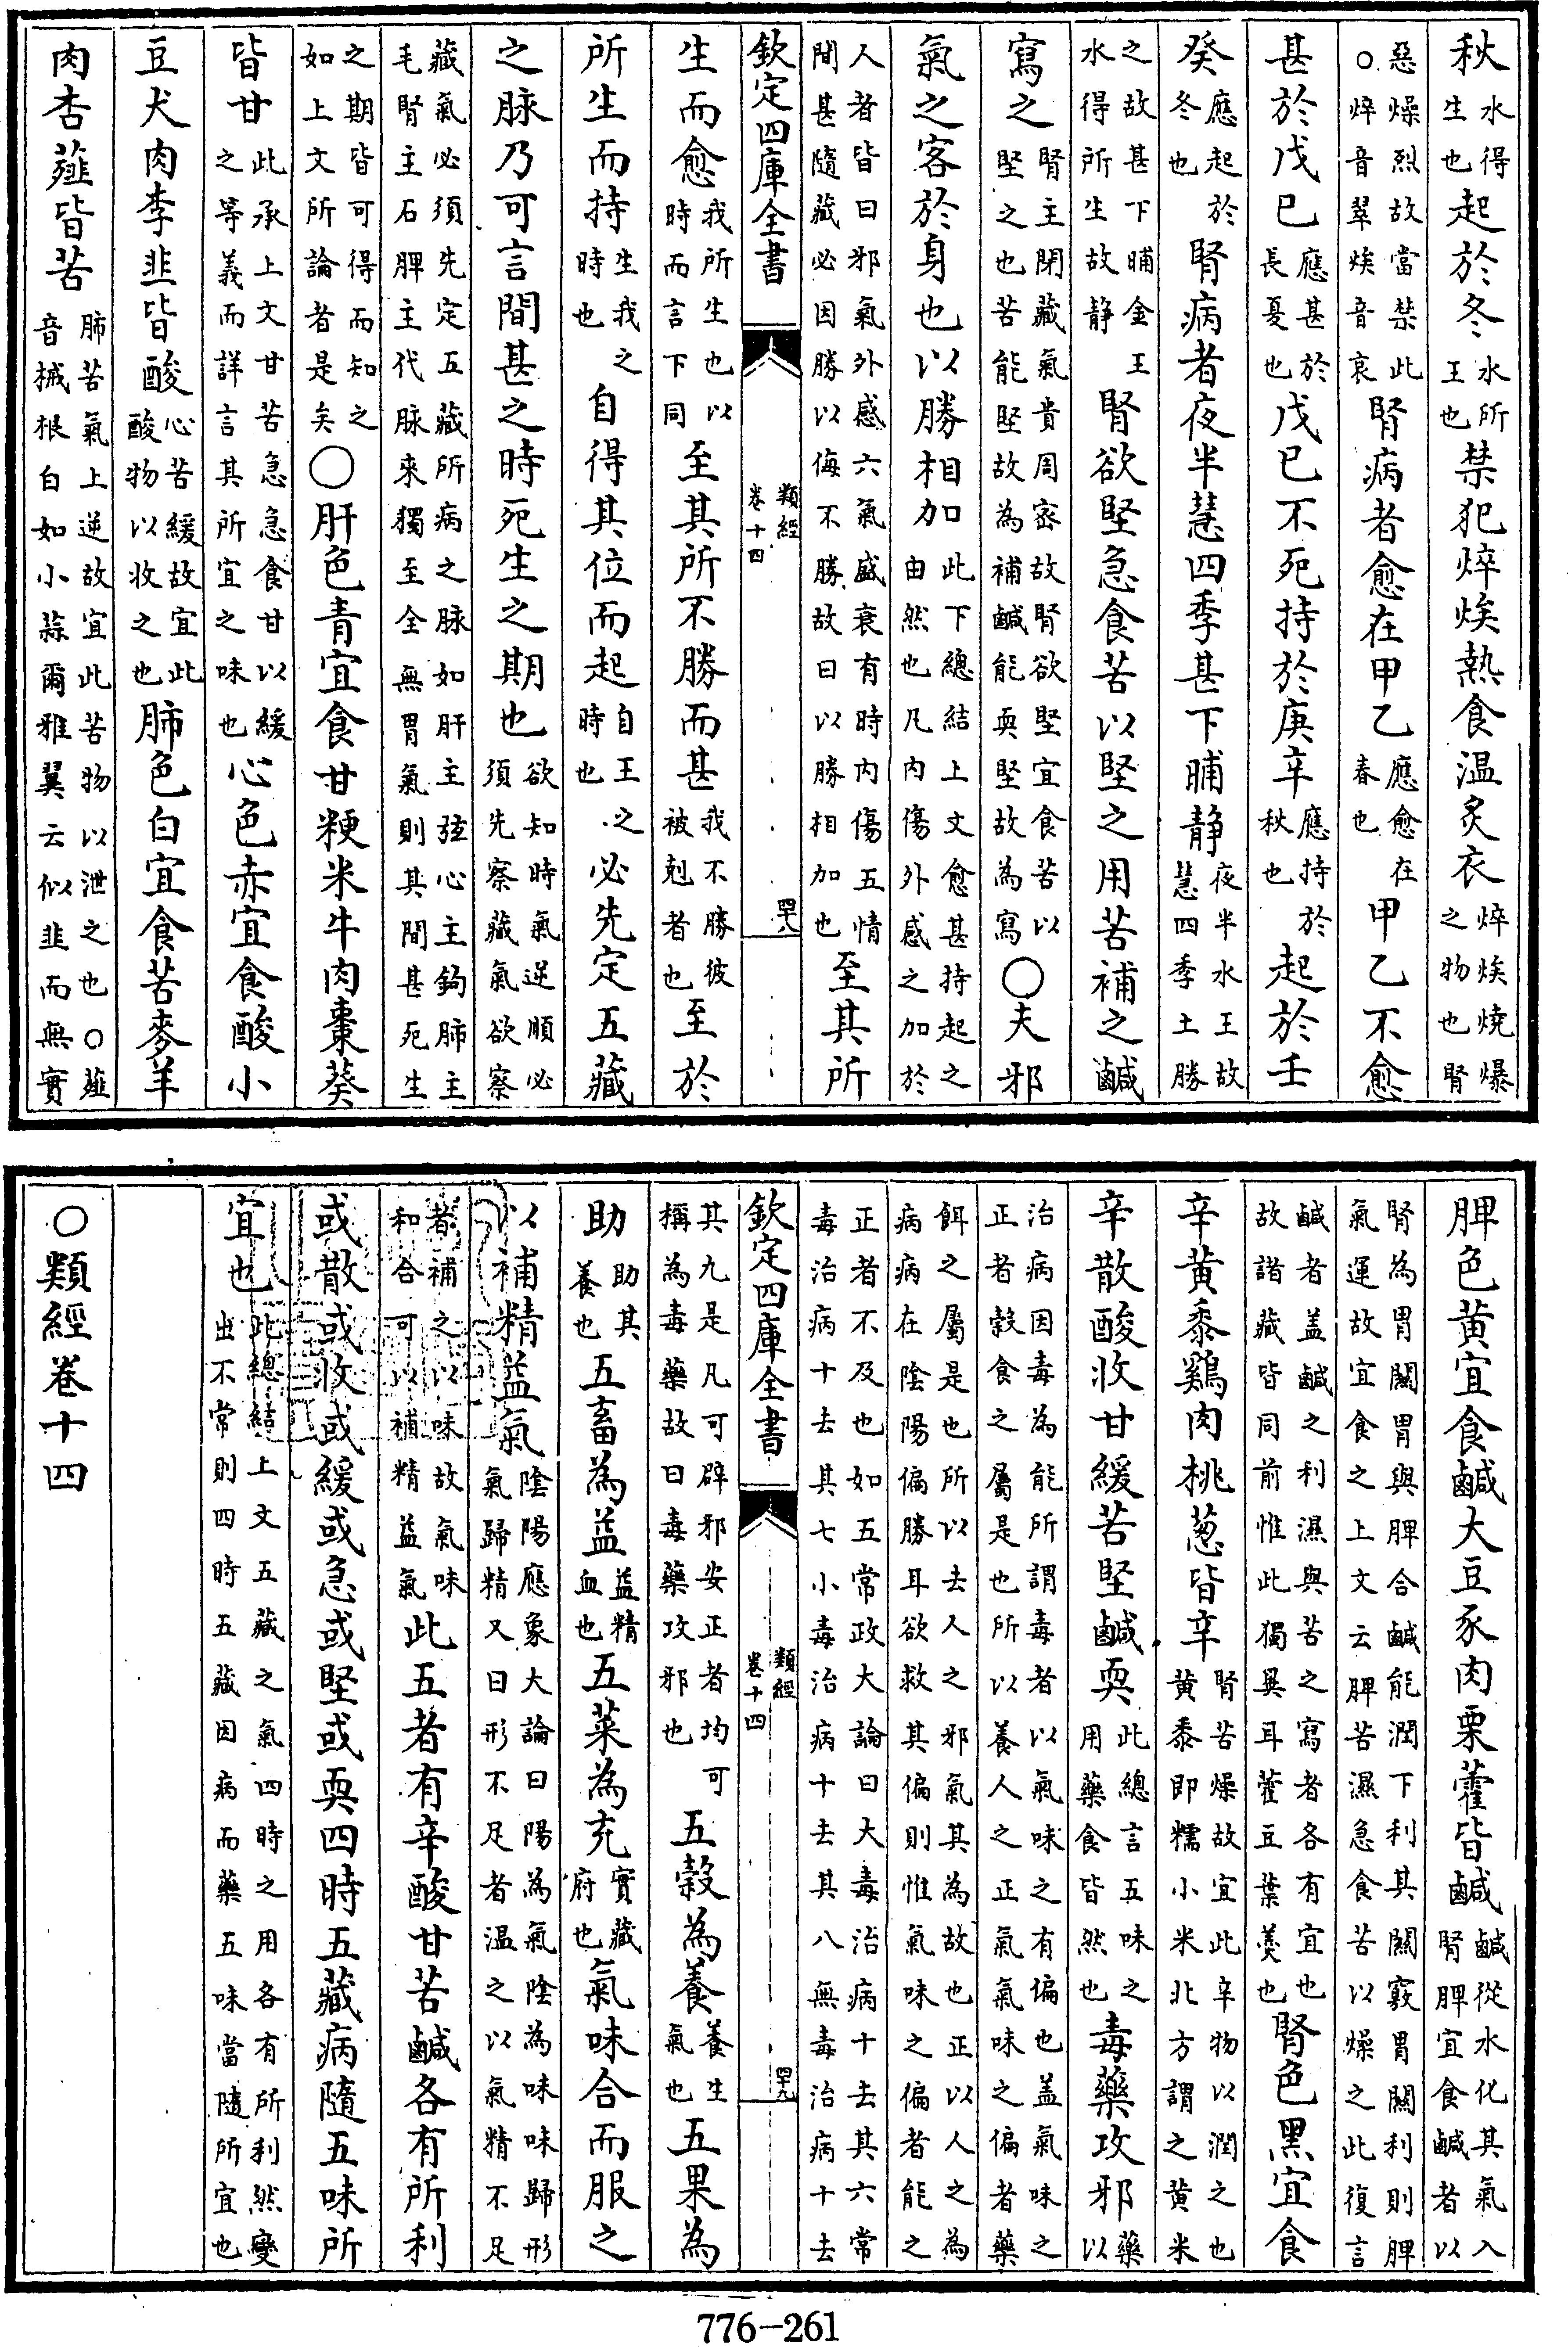 秋水得生也起於冬水所王也禁犯焠㶼熱食温炙衣焠㶼燒爆之物也腎
惡燥烈故當禁此○焠音翠㶼音哀腎病者愈在甲乙應愈在春也甲乙不愈
甚於戊巳應甚於長夏也戊巳不死持於庚辛應持於秋也起於壬
癸應起於冬也腎病者夜半慧四季甚下晡静夜半水王故慧四季土勝
之故甚下晡金王水得所生故静腎欲堅急食苦以堅之用苦補之鹹
寫之腎主閉藏氣貴周宻故腎欲堅宜食苦以堅之也苦能堅故為補鹹能耎堅故為寫○夫邪
氣之客於身也以勝相加此下總結上文愈甚持起之由然也凡内傷外感之加於
人者皆曰邪氣外感六氣盛衰有時内傷五情間甚隨藏必因勝以侮不勝故曰以勝相加也至其所
欽定四庫全書 類經 卷十四 四十八
生而愈我所生也以時而言下同至其所不勝而甚我不勝彼被剋者也至於
所生而持生我之時也自得其位而起自王之時也必先定五藏
之脉乃可言間甚之時死生之期也欲知時氣逆順必須先察藏氣欲察
藏氣必須先定五藏所病之脉如肝主弦心主鈎肺主毛腎主石脾主代脉來獨至全無胃氣則其間甚死生
之期皆可得而知之如上文所論者是矣○肝色青宜食甘粳米牛肉棗葵
皆甘此承上文甘苦急急食甘以緩之等義而詳言其所宜之味也心色赤宜食酸小
豆犬肉李韭皆酸心苦緩故宜此酸物以收之也肺色白宜食苦麥羊
肉杏薤皆苦肺苦氣上逆故宜此苦物以泄之也○薤音械根白如小蒜爾雅翼云似韭而無實
脾色黄宜食鹹大豆豕肉栗藿皆鹹鹹從水化其氣入腎脾宜食鹹者以
腎為胃關胃與脾合鹹能潤下利其關竅胃關利則脾氣運故宜食之上文云脾苦濕急食苦以燥之此復言
鹹者盖鹹之利濕與苦之寫者各有宜也故諸藏皆同前惟此獨異耳藿豆葉羮也腎色黑宜食
辛黄黍鷄肉桃葱皆辛腎苦燥故宜此辛物以潤之也黄黍即糯小米北方謂之黄米
辛散酸收甘緩苦堅鹹耎此總言五味之用藥食皆然也毒藥攻邪藥以
治病因毒為能所謂毒者以氣味之有偏也盖氣味之正者穀食之屬是也所以養人之正氣氣味之偏者藥
餌之屬是也所以去人之邪氣其為故也正以人之為病病在陰陽偏勝耳欲救其偏則惟氣味之偏者能之
正者不及也如五常政大論曰大毒治病十去其六常毒治病十去其七小毒治病十去其八無毒治病十去
欽定四庫全書 類經 卷十四 四十九
其九是凡可辟邪安正者均可稱為毒藥故曰毒藥攻邪也五穀為養養生氣也五果為
助助其養也五畜為益益精血也五菜為充實藏府也氣味合而服之
以補精益氣陰陽應象大論曰陽為氣陰為味味歸形氣歸精又曰形不足者温之以氣精不足
者補之以味故氣味和合可以補精益氣此五者有辛酸甘苦鹹各有所利
或散或收或緩或急或堅或耎四時五藏病隨五味所
宜也此總結上文五藏之氣四時之用各有所利然變出不常則四時五藏因病而藥五味當隨所宜也
○類經卷十四
776-261